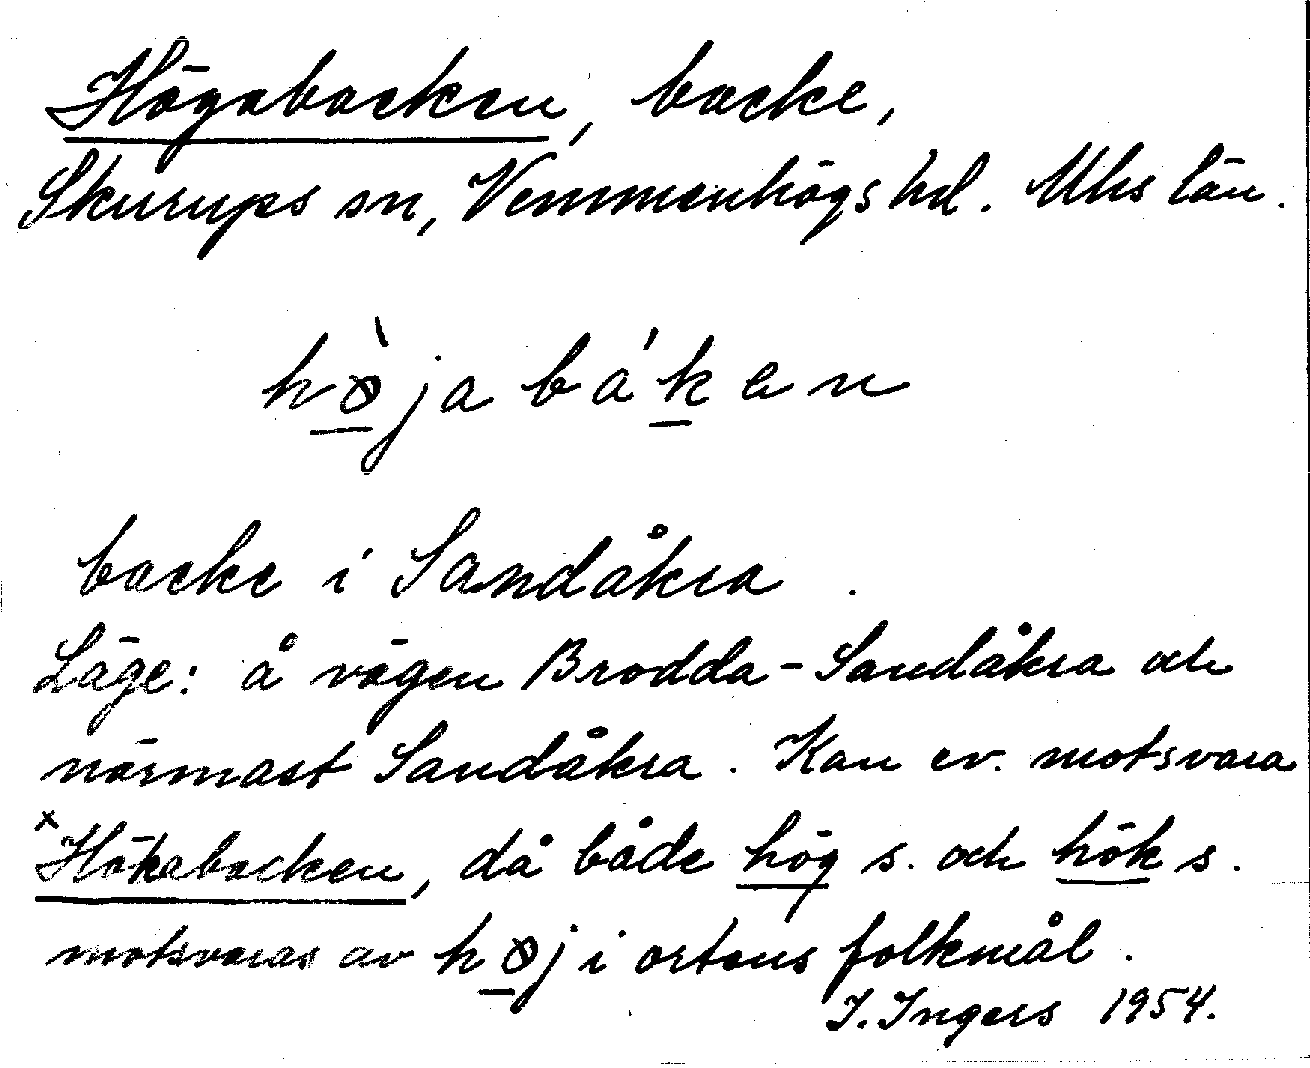 Högabacken, backe,
Skurups sn, Vemmenhögs hd. Mhs län.
hø̀jabá'ken
backe i Sandåkra.
Läge: å vägen Brodda-Sandåkra och
närmast Sandåkra. Kan ev. motsvara
*Hökabacken, då både hög s. och hök s.
motsvaras av høj i ortens folkmål.
I. Ingers 1954.